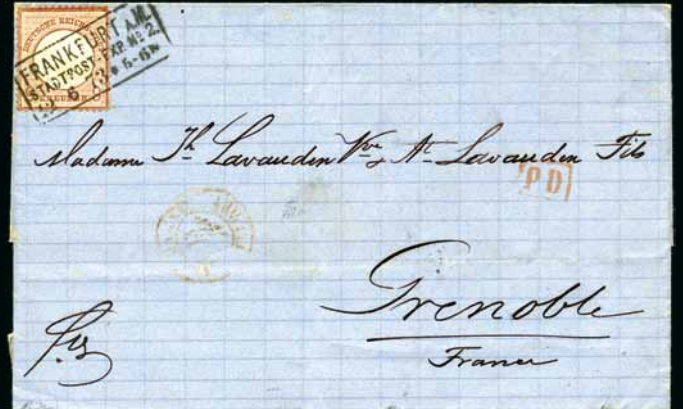 DEUTSCHE REICHS
FRANKFURT A.M.
STADTPOST-EXP. No 2.
6
KREUZER
Madame Jh Lavauden Vve & At Lavauden Fils
PD
Grenoble
France